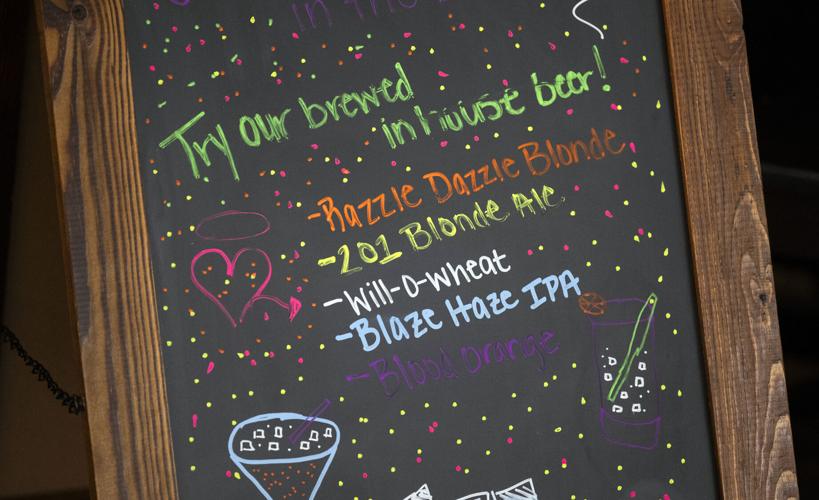 in the
Try our brewed
in house beer!
-Razzle Dazzle Blonde
-201 Blonde Ale
-Will-O-Wheat
-Blaze Haze IPA
-Blood orange